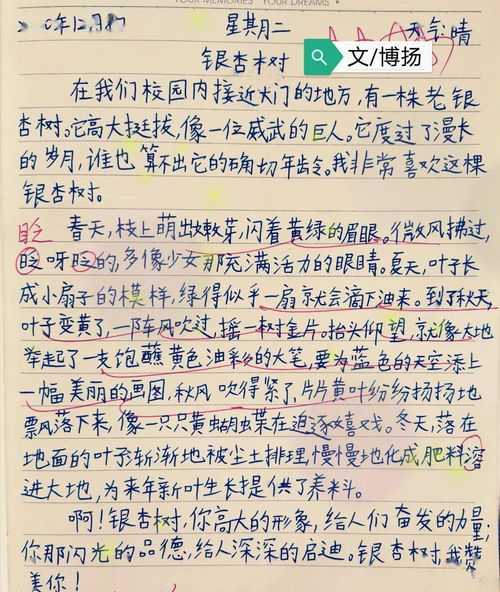 YOUR MEMORIES YOUR DREAMS
年12月 星期二 天气:晴
银杏树
文/博扬
在我们校园内接近大门的地方,有一株老银
杏树。它高大挺拔,像一位威武的巨人。它度过了漫长
的岁月,谁也算不出它的确切年龄。我非常喜欢这棵
银杏树。
春天,枝上萌出嫩芽,闪着黄绿的眉眼。微风拂过,
眨呀眨的,多像少女那充满活力的眼睛。夏天,叶子长
成小扇子的模样,绿得似乎一扇就会滴下油来。到了秋天,
叶子变黄了,一阵风吹过,摇一树金片。抬头仰望,就像大地
举起了一支饱蘸黄色油彩的大笔,要为蓝色的天空添上
一幅美丽的画图,秋风吹得紧了,片片黄叶纷纷扬扬地
票风落下来,像一只只黄蝴蝶在追逐嬉戏。冬天,落在
地面的叶子渐渐地被尘土排理,慢慢地化成肥料溶
进大地,为来年新叶生长提供了养料。
啊!银杏树,你高大的形象,给人们奋发的力量;
你那闪光的品德,给人深深的启迪。银杏树,我赞
美你!
眨